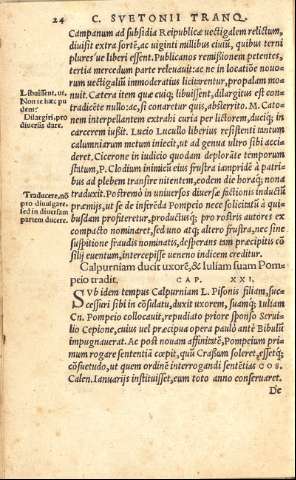 24 C. SVETONII TRANQ.
Campanum ad subsidia Reipublicæ vectigalem relictum,
divisit extra sortē, ac viginti millibus civiū, quibus terni
plures ve liberi essent. Publicanos remißionem petentes,
tertia mercedum parte relevavit: ac ne in locatiōe novo-
rum vectigaliū immoderatius licitarentur, propalam mo-
nuit. Cætera item quæ cuiq; libuissent, dilargitus est con-
tradicēte nullo: ac, si conaretur quis, absterrito. M. Cato-
nem interpellantem extrahi curia per lictorem, duciq; in
carcerem iußit. Lucio Lucullo liberius resistenti tantum
calumniarum metum iniecit, ut ad genua ultro sibi acci-
deret. Cicerone in iudicio quodam deplorāte temporum
statum, P. Clodium inimicū eius frustra iampridē à patri-
bus ad plebem transire nitentem, eodem die horaq; nona
traduxit. Postremò in universos diversæ factionis inductū
præmijs, ut se de inferēda Pompeio nece solicitatū à qui-
busdam profiteretur, productusq; pro rostris autores ex
compacto nominaret, sed uno atq; altero frustra, nec sine
suspitione fraudis nominatis, desperans tam præcipitis cō
silij eventum, intercepisse veneno indicem creditur.
Calpurniam ducit uxorē, & Iuliam suam Pom-
peio tradit. CAP. XXI.
SVb idem tempus Calpurniam L. Pisonis filiam, suc-
cessuri sibi in cōsulatu, duxit uxorem, suamq; Iuliam
Cn. Pompeio collocavit, repudiato priore sponso Servi-
lio Cepione, cuius vel præcipua opera paulò antè Bibulū
impugnaverat. Ac post novam affinitatē, Pompeium pri-
mum rogare sententiā cœpit, quū Crassum soleret, essetq;
cōsuetudo, ut quem ordinē interrogandi sentētias COS.
Calen. Ianuarijs instituisset, eum toto anno conservaret.
De
Libuissent, ut.
Non te hæc pu
dem?
Dilargiri, pro
diversis dare.
Traducere, nō
pro divulgare,
sed in diversam
partem ducere.